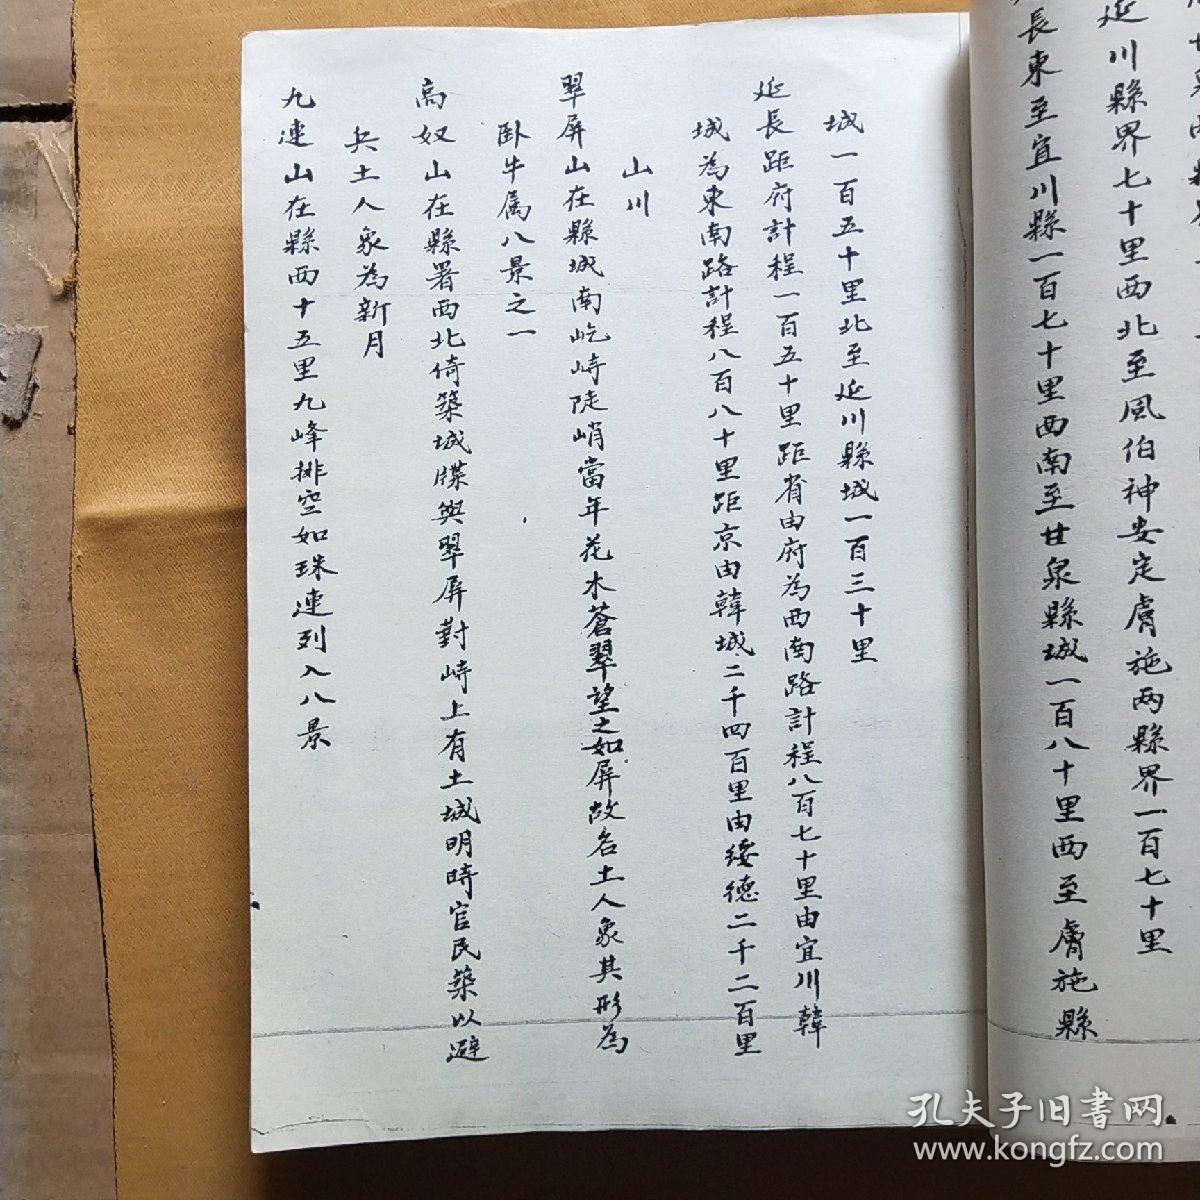 延川縣界七十里西北至風伯神安定膚施两縣界一百七十里
長東至宜川縣一百七十里西南至甘泉縣城一百八十里西至膚施縣
城一百五十里北至延川縣城一百三十里
延長距府計程一百五十里距省由府為西南路計程八百七十里由宜川韓
城為東南路計程八百八十里距京由韓城二千四百里由綏德二千二百里
山川
翠屏山在縣城南屹峙陡峭當年花木蒼翠望之如屏故名土人象其形為
卧牛属八景之一
高奴山在縣署西北倚築城牒與翠屏對峙上有土城明時官民築以避
兵土人象為新月
九連山在縣西十五里九峰排空如珠連列入八景
孔夫子旧書网
www.kongfz.com